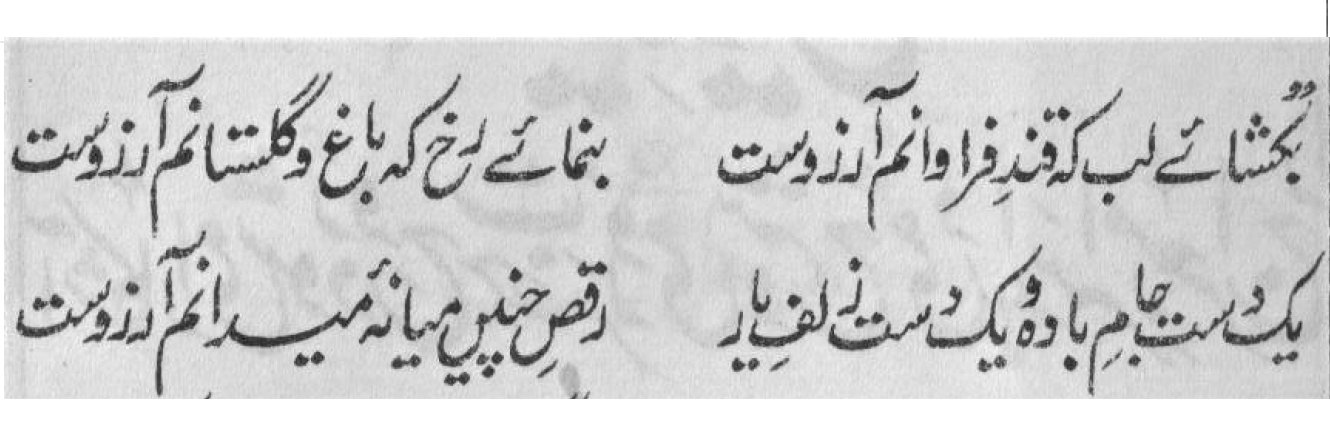 بُکشائے لب کہ قندِ فراوانم آرزوست بنمائے رخ کہ باغ و گلستانم آرزوست
یک دست جامِ بادہ و یک دست زلفِ یار رقصِ چنیں میانۂ میدانم آرزوست